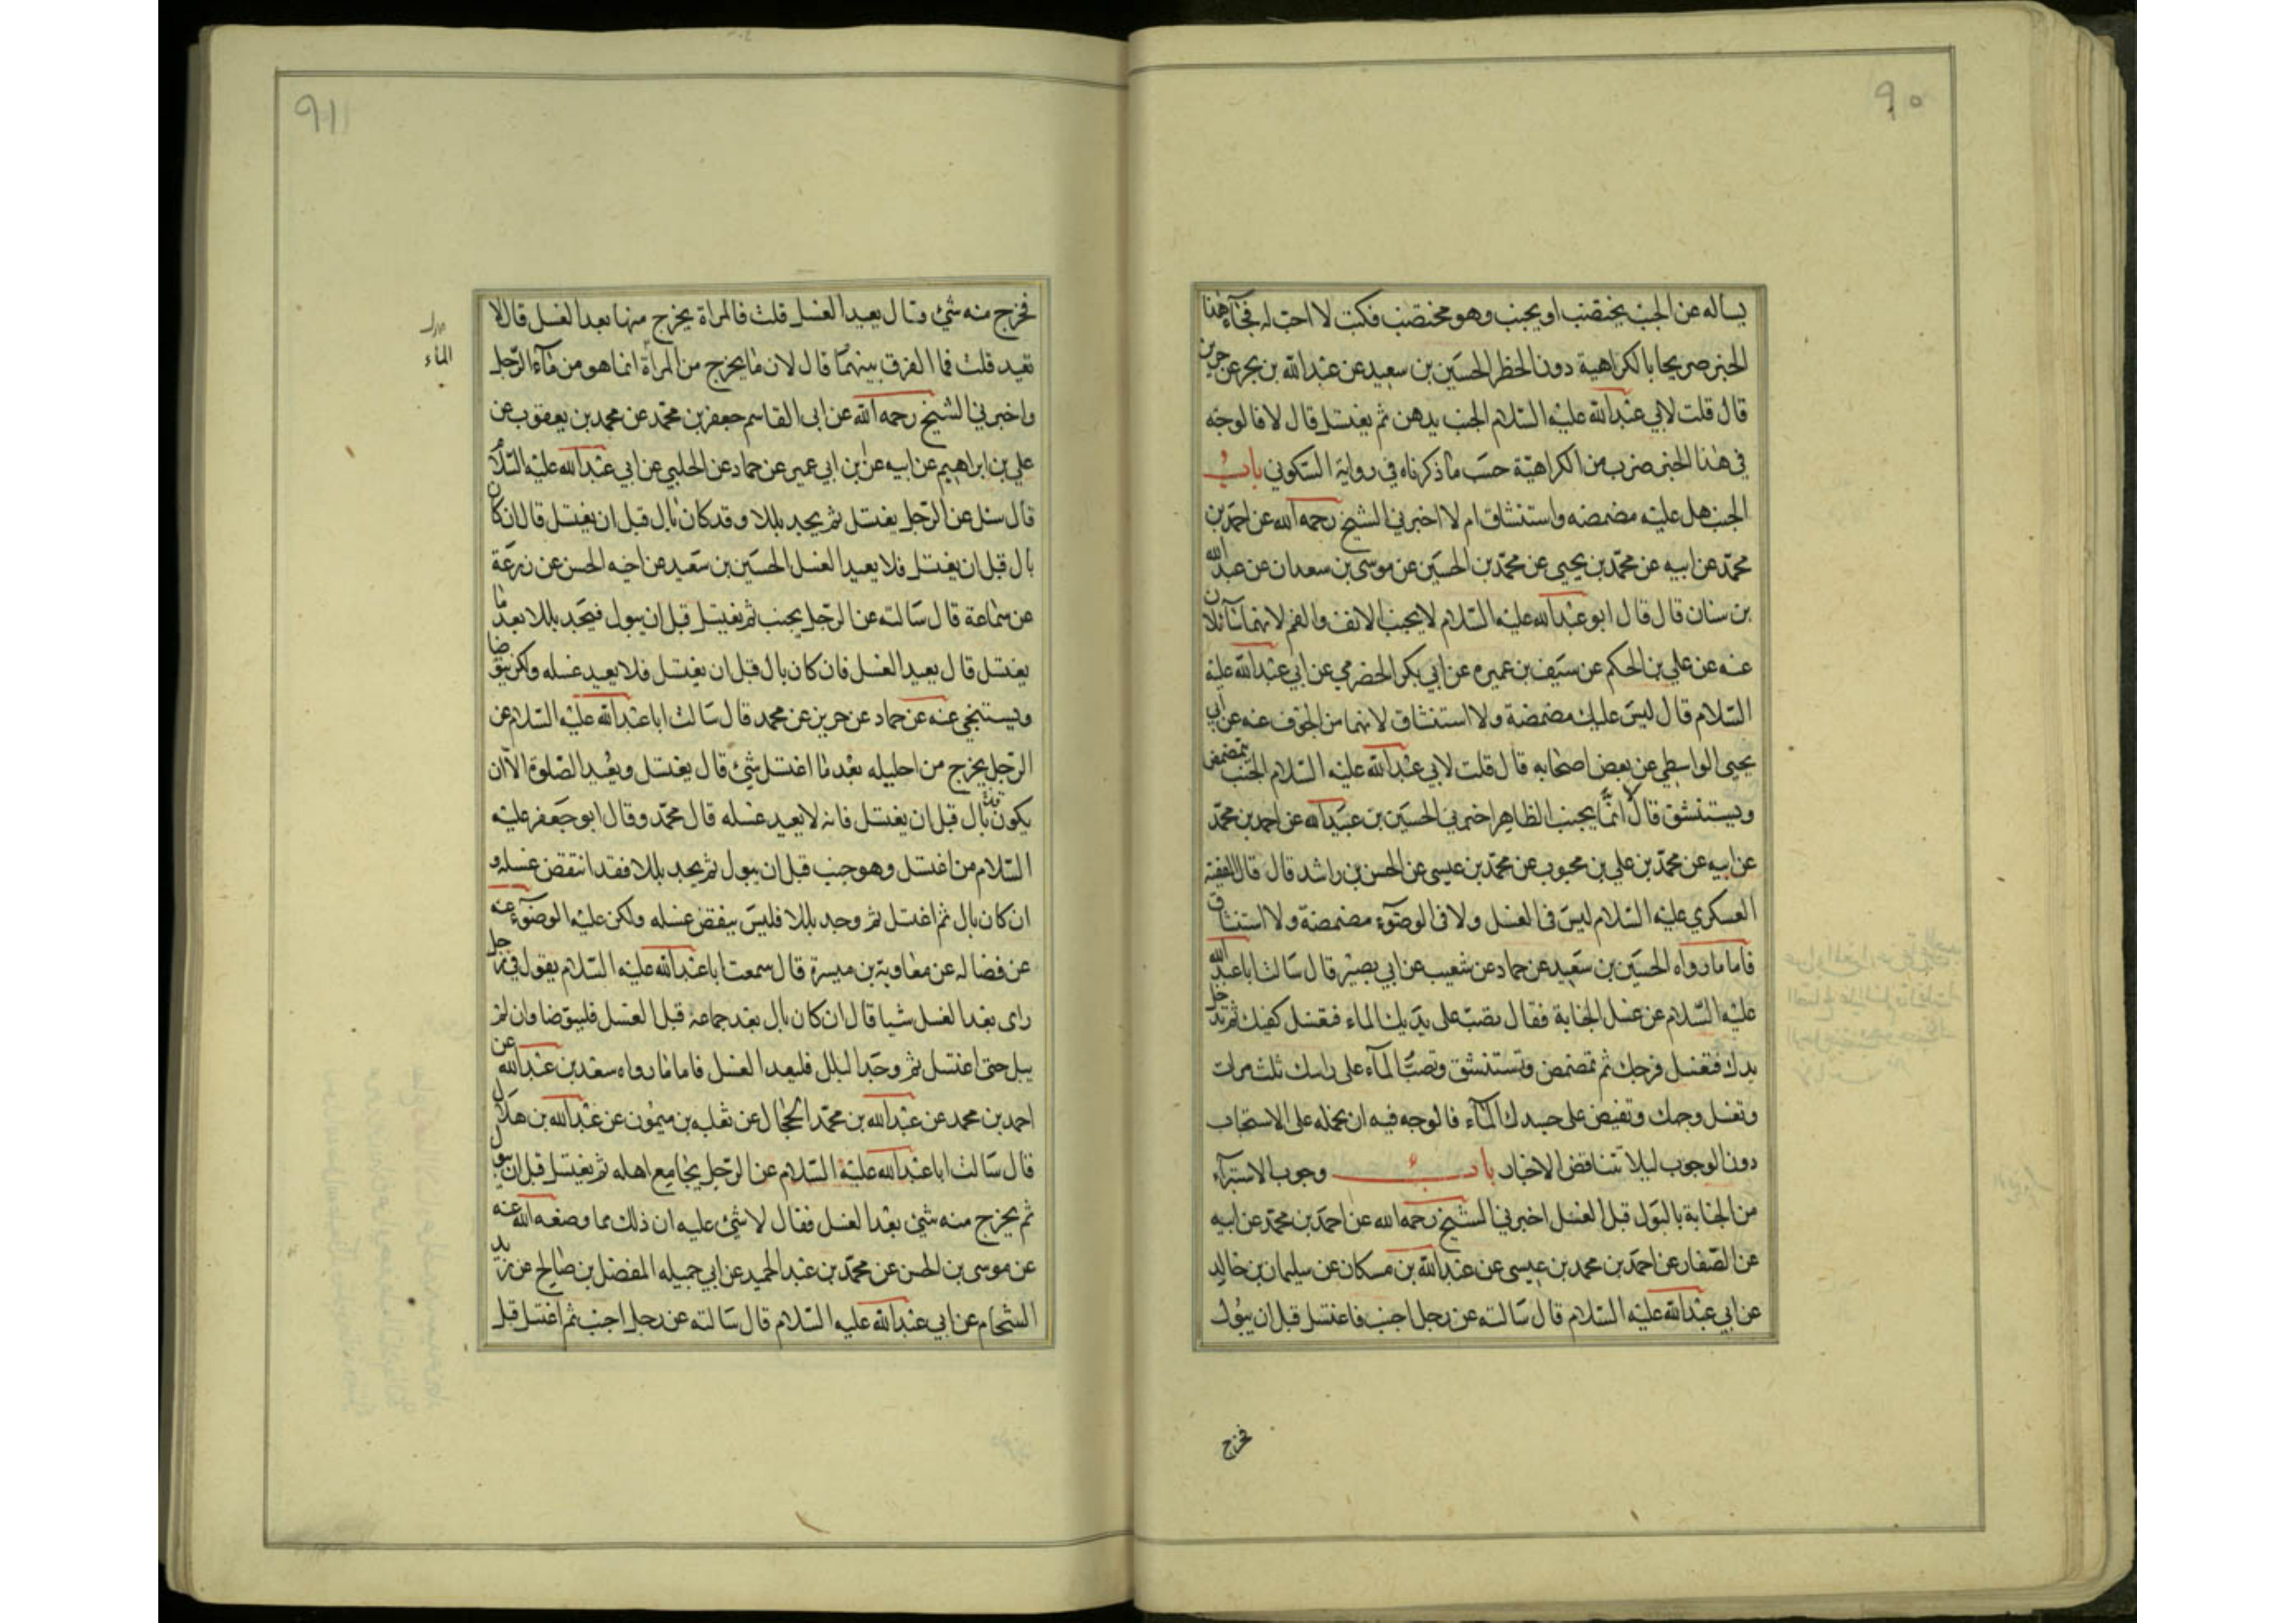 ٩٠
يساله عن الجنب يختضب او يجنب وهو مختضب فكتب لا احب له فجآء هذا
الخبر صريحا بالكراهية دون الحظر الحسين بن سعيد عن عبدالله بن بحر عن حريز
قال قلت لابي عبدالله عليه السلام الجنب يدهن ثم يغتسل قال لا فالوجه
في هذا الخبر ضرب من الكراهية حسب ما ذكرناه في رواية السكوني باب
الجنب هل عليه مضمضه واستنشاق ام لا اخبرني الشيخ رحمه الله عن احمد بن
محمد عن ابيه عن محمد بن يحيى عن محمد بن الحسين عن موسى بن سعدان عن عبدالله
بن سنان قال قال ابو عبدالله عليه السلام لا يجنب الانف والفم لانهما سآئلان
عنه عن علي بن الحكم عن سيف بن عميره عن ابي بكر الحضرمي عن ابي عبدالله عليه
السلام قال ليس عليك مضمضة ولا استنشاق لانهما من الجوف عنه عن ابي
يحيى الواسطي عن بعض اصحابه قال قلت لابي عبدالله عليه السلام الجنب يتمضمض
ويستنشق قال لا انما يجنب الظاهر اخبرني الحسين بن عبيدالله عن احمد بن محمد
عن ابيه عن محمد بن علي بن محبوب عن محمد بن عيسى عن الحسن بن راشد قال قال الفقيه
العسكري عليه السلام ليس في الغسل ولا في الوضوء مضمضة ولا استنشاق
فاما ما رواه الحسين بن سعيد عن حماد عن شعيب عن ابي بصير قال سالت اباعبدالله
عليه السلام عن غسل الجنابة فقال تصب على يديك الماء فتغسل كفيك ثم تدخل
يدك فتغسل فرجك ثم تمضمض وتستنشق وتصب المآء على راسك ثلث مرات
وتغسل وجهك وتفيض على جسدك المآء فالوجه فيه ان نحمله على الاستحباب
دون الوجوب ليلا تتناقض الاخبار باب وجوب الاستبرآء
من الجنابة بالبول قبل الغسل اخبرني الشيخ رحمه الله عن احمد بن محمد عن ابيه
عن الصفار عن احمد بن محمد بن عيسى عن عبدالله بن مسكان عن سليمان بن خالد
عن ابي عبدالله عليه السلام قال سالته عن رجل اجنب فاغتسل قبل ان يبول
فخرج
٩١
فخرج منه شئ وقال يعيد الغسل قلت فالمراة يخرج منها بعد الغسل قال لا
تعيد قلت فما الفرق بينهما قال لان ما يخرج من المرأة انما هو من مآء الرجل
الماء
واخبرني الشيخ رحمه الله عن ابى القاسم جعفر بن محمد عن محمد بن يعقوب عن
علي بن ابراهيم عن ابيه عن بن ابي عمير عن حماد عن الحلبي عن ابي عبدالله عليه السلام
قال سئل عن الرجل يغتسل ثم يجد بللا وقد كان بال قبل ان يغتسل قال ان كان
بال قبل ان يغتسل فلا يعيد الغسل الحسين بن سعيد عن اخيه الحسن عن زرعة
عن سماعة قال سالته عن الرجل يجنب ثم يغتسل قبل ان يبول فيجد بللا بعد ما
يغتسل قال يعيد الغسل فان كان بال قبل ان يغتسل فلا يعيد غسله ولكن يتوضا
ويستنجي عنه عن حماد عن حريز عن محمد قال سالت اباعبدالله عليه السلام عن
الرجل يخرج من احليله بعد ما اغتسل شئ قال يغتسل ويعيد الصلوة الا ان
يكون بال قبل ان يغتسل فانه لا يعيد غسله قال محمد وقال ابو جعفر عليه
السلام من اغتسل وهو جنب قبل ان يبول ثم يجد بللا فقد انتقض غسله و
ان كان بال ثم اغتسل ثم وجد بللا فليس ينقض غسله ولكن عليه الوضوء عنه
عن فضاله عن معاوية بن ميسرة قال سمعت اباعبدالله عليه السلام يقول في رجل
راى بعد الغسل شيا قال ان كان بال بعد جماعه قبل الغسل فليتوضا وان لم
يبل حتى اغتسل ثم وجد البلل فليعد الغسل فاما ما رواه سعد بن عبدالله عن
احمد بن محمد عن عبدالله بن محمد الحجال عن ثعلبه بن ميمون عن عبدالله بن هلال
قال سالت اباعبدالله عليه السلام عن الرجل يجامع اهله ثم يغتسل قبل ان يبول
ثم يخرج منه شئ بعد الغسل فقال لا شئ عليه ان ذلك مما وضعه الله عنه
عن موسى بن الحسن عن محمد بن عبد الحميد عن ابي جميله المفضل بن صالح عن زيد
الشحام عن ابي عبدالله عليه السلام قال سالته عن رجل اجنب ثم اغتسل قبل